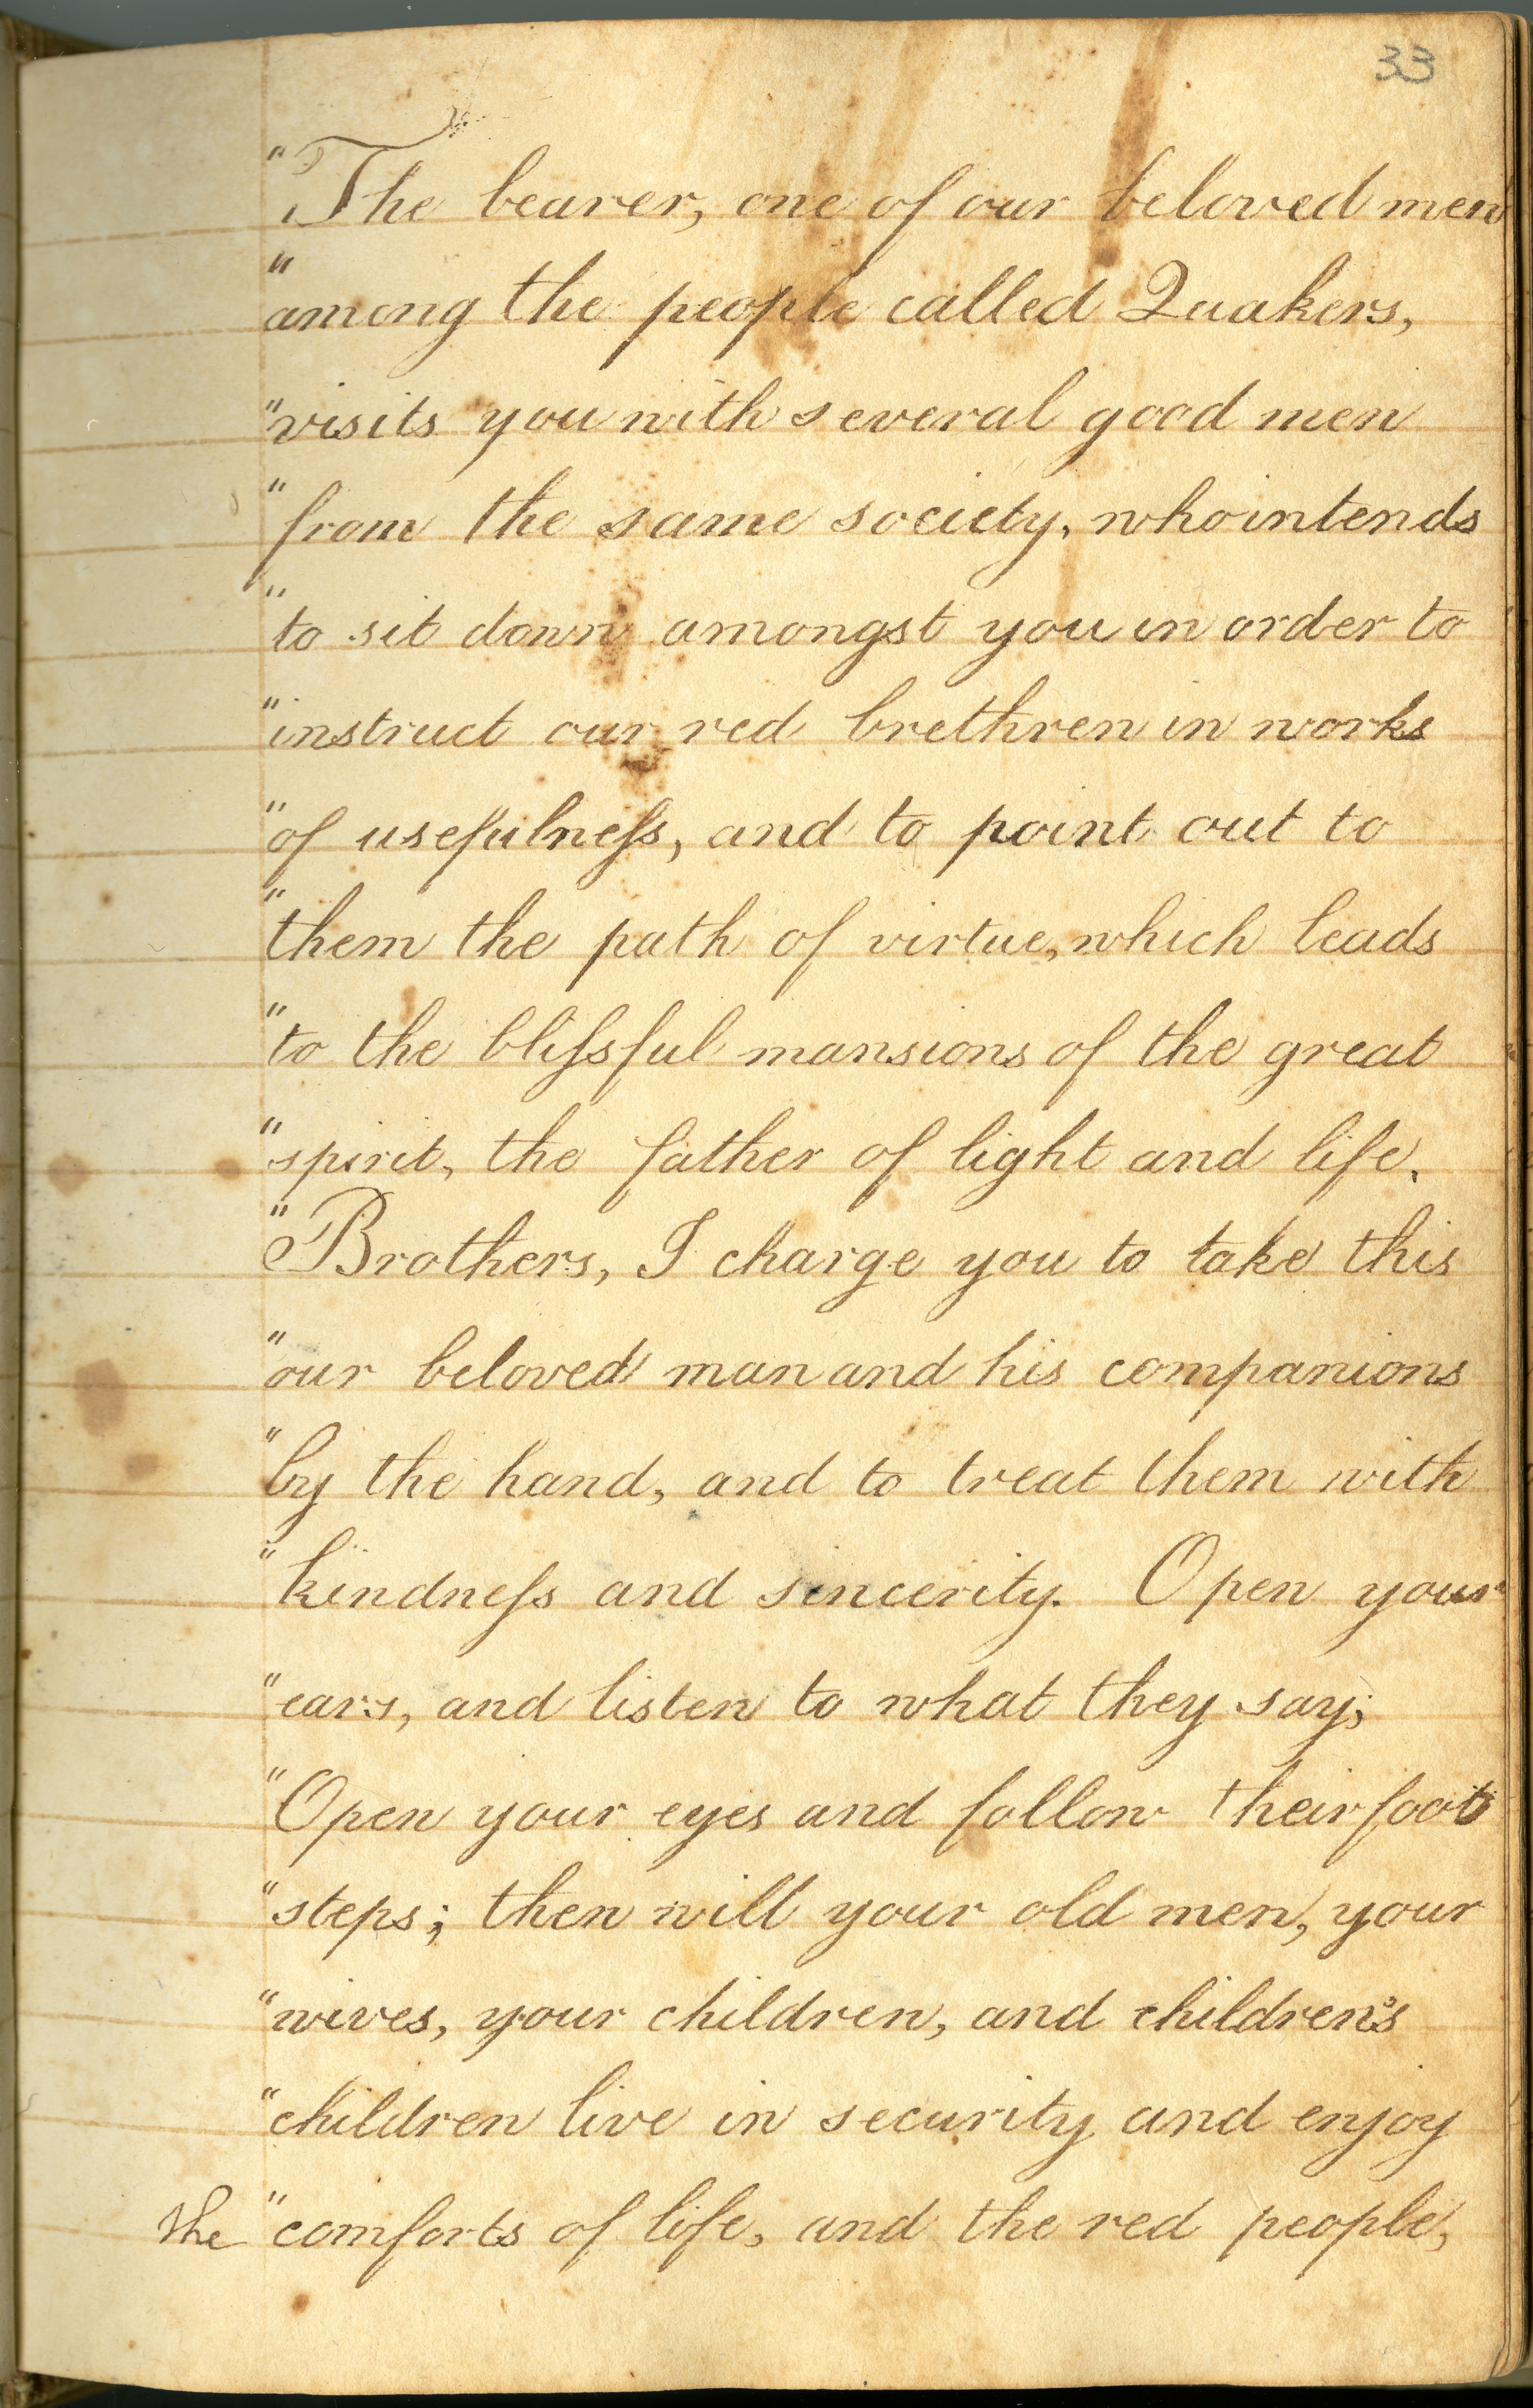 33
"The bearer, one of our beloved men
"among the people called Quakers,
"visits you with several good men
"from the same society, who intends
"to sit down amongst you in order to
"instruct our red brethren in works
"of usefulness, and to point out to
"them the path of virtue, which leads
"to the blissful mansions of the great
"spirit, the father of light and life.
"Brothers, I charge you to take this
"our beloved man and his companions
"by the hand, and to treat them with
"kindness and sincerity. Open your
"ears, and listen to what they say;
"Open your eyes and follow their foot
"steps; then will your old men, your
"wives, your children, and children's
"children live in security and enjoy
the "comforts of life, and the red people,